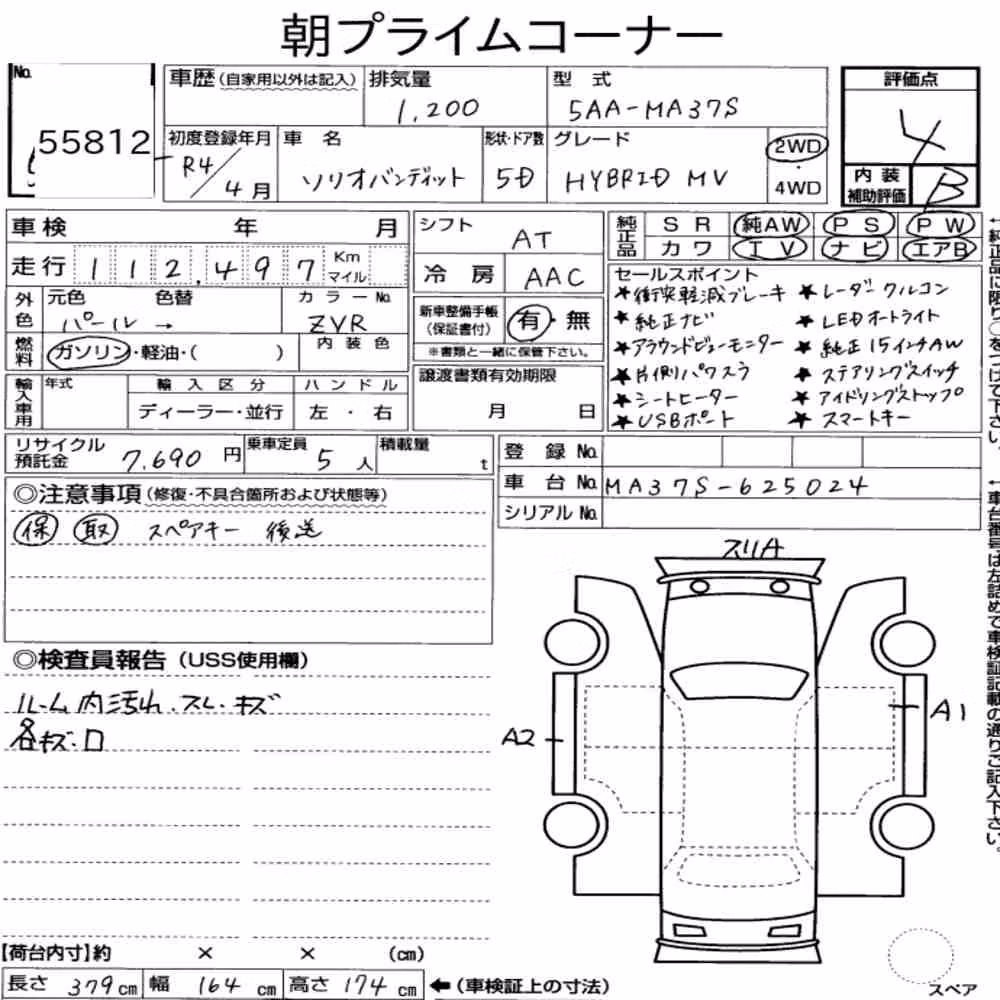 朝プライムコーナー
No. 55812
車歴 (自家用以外は記入)
排気量 1,200
型式 5AA-MA37S
初度登録年月 R4/4月
車名 ソリオバンディット
形状・ドア数 5D
グレード HYBRID MV
2WD・4WD
評価点 4
内装補助評価 B
車検 年 月
走行 112,497 Km マイル
シフト AT
冷房 AAC
純正品 SR 純AW PS PW
カワ IV ナビ エアB
外色 元色 色替 カラーNo.
パール → ZVR
燃料 ガソリン・軽油・( )
内装色
新車整備手帳(保証書付) 有・無
※書類と一緒に保管下さい。
譲渡書類有効期限
月 日
輸入車用 年式 輸入区分 ハンドル
ディーラー・並行 左・右
セールスポイント
★衝突軽減ブレーキ ★レーダークルコン
★純正ナビ ★LEDオートライト
★アラウンドビューモニター ★純正15インチAW
★片側パワスラ ★ステアリングスイッチ
★シートヒーター ★アイドリングストップ
★USBポート ★スマートキー
リサイクル預託金 7,690円
乗車定員 5人
積載量 t
登録No.
車台No. MA37S-625024
シリアルNo.
◎注意事項(修復・不具合箇所および状態等)
保 取 スペアキー 後送
◎検査員報告(USS使用欄)
ルーム内汚れ.スレ.キズ
各キズ.ロ
スリA
A2
A1
【荷台内寸】約 × × (cm)
長さ 379cm 幅 164cm 高さ 174cm ←(車検証上の寸法)
スペア
←純正品に限り○をつけて下さい。
←車台番号は左詰めで車検証記載の通りご記入下さい。